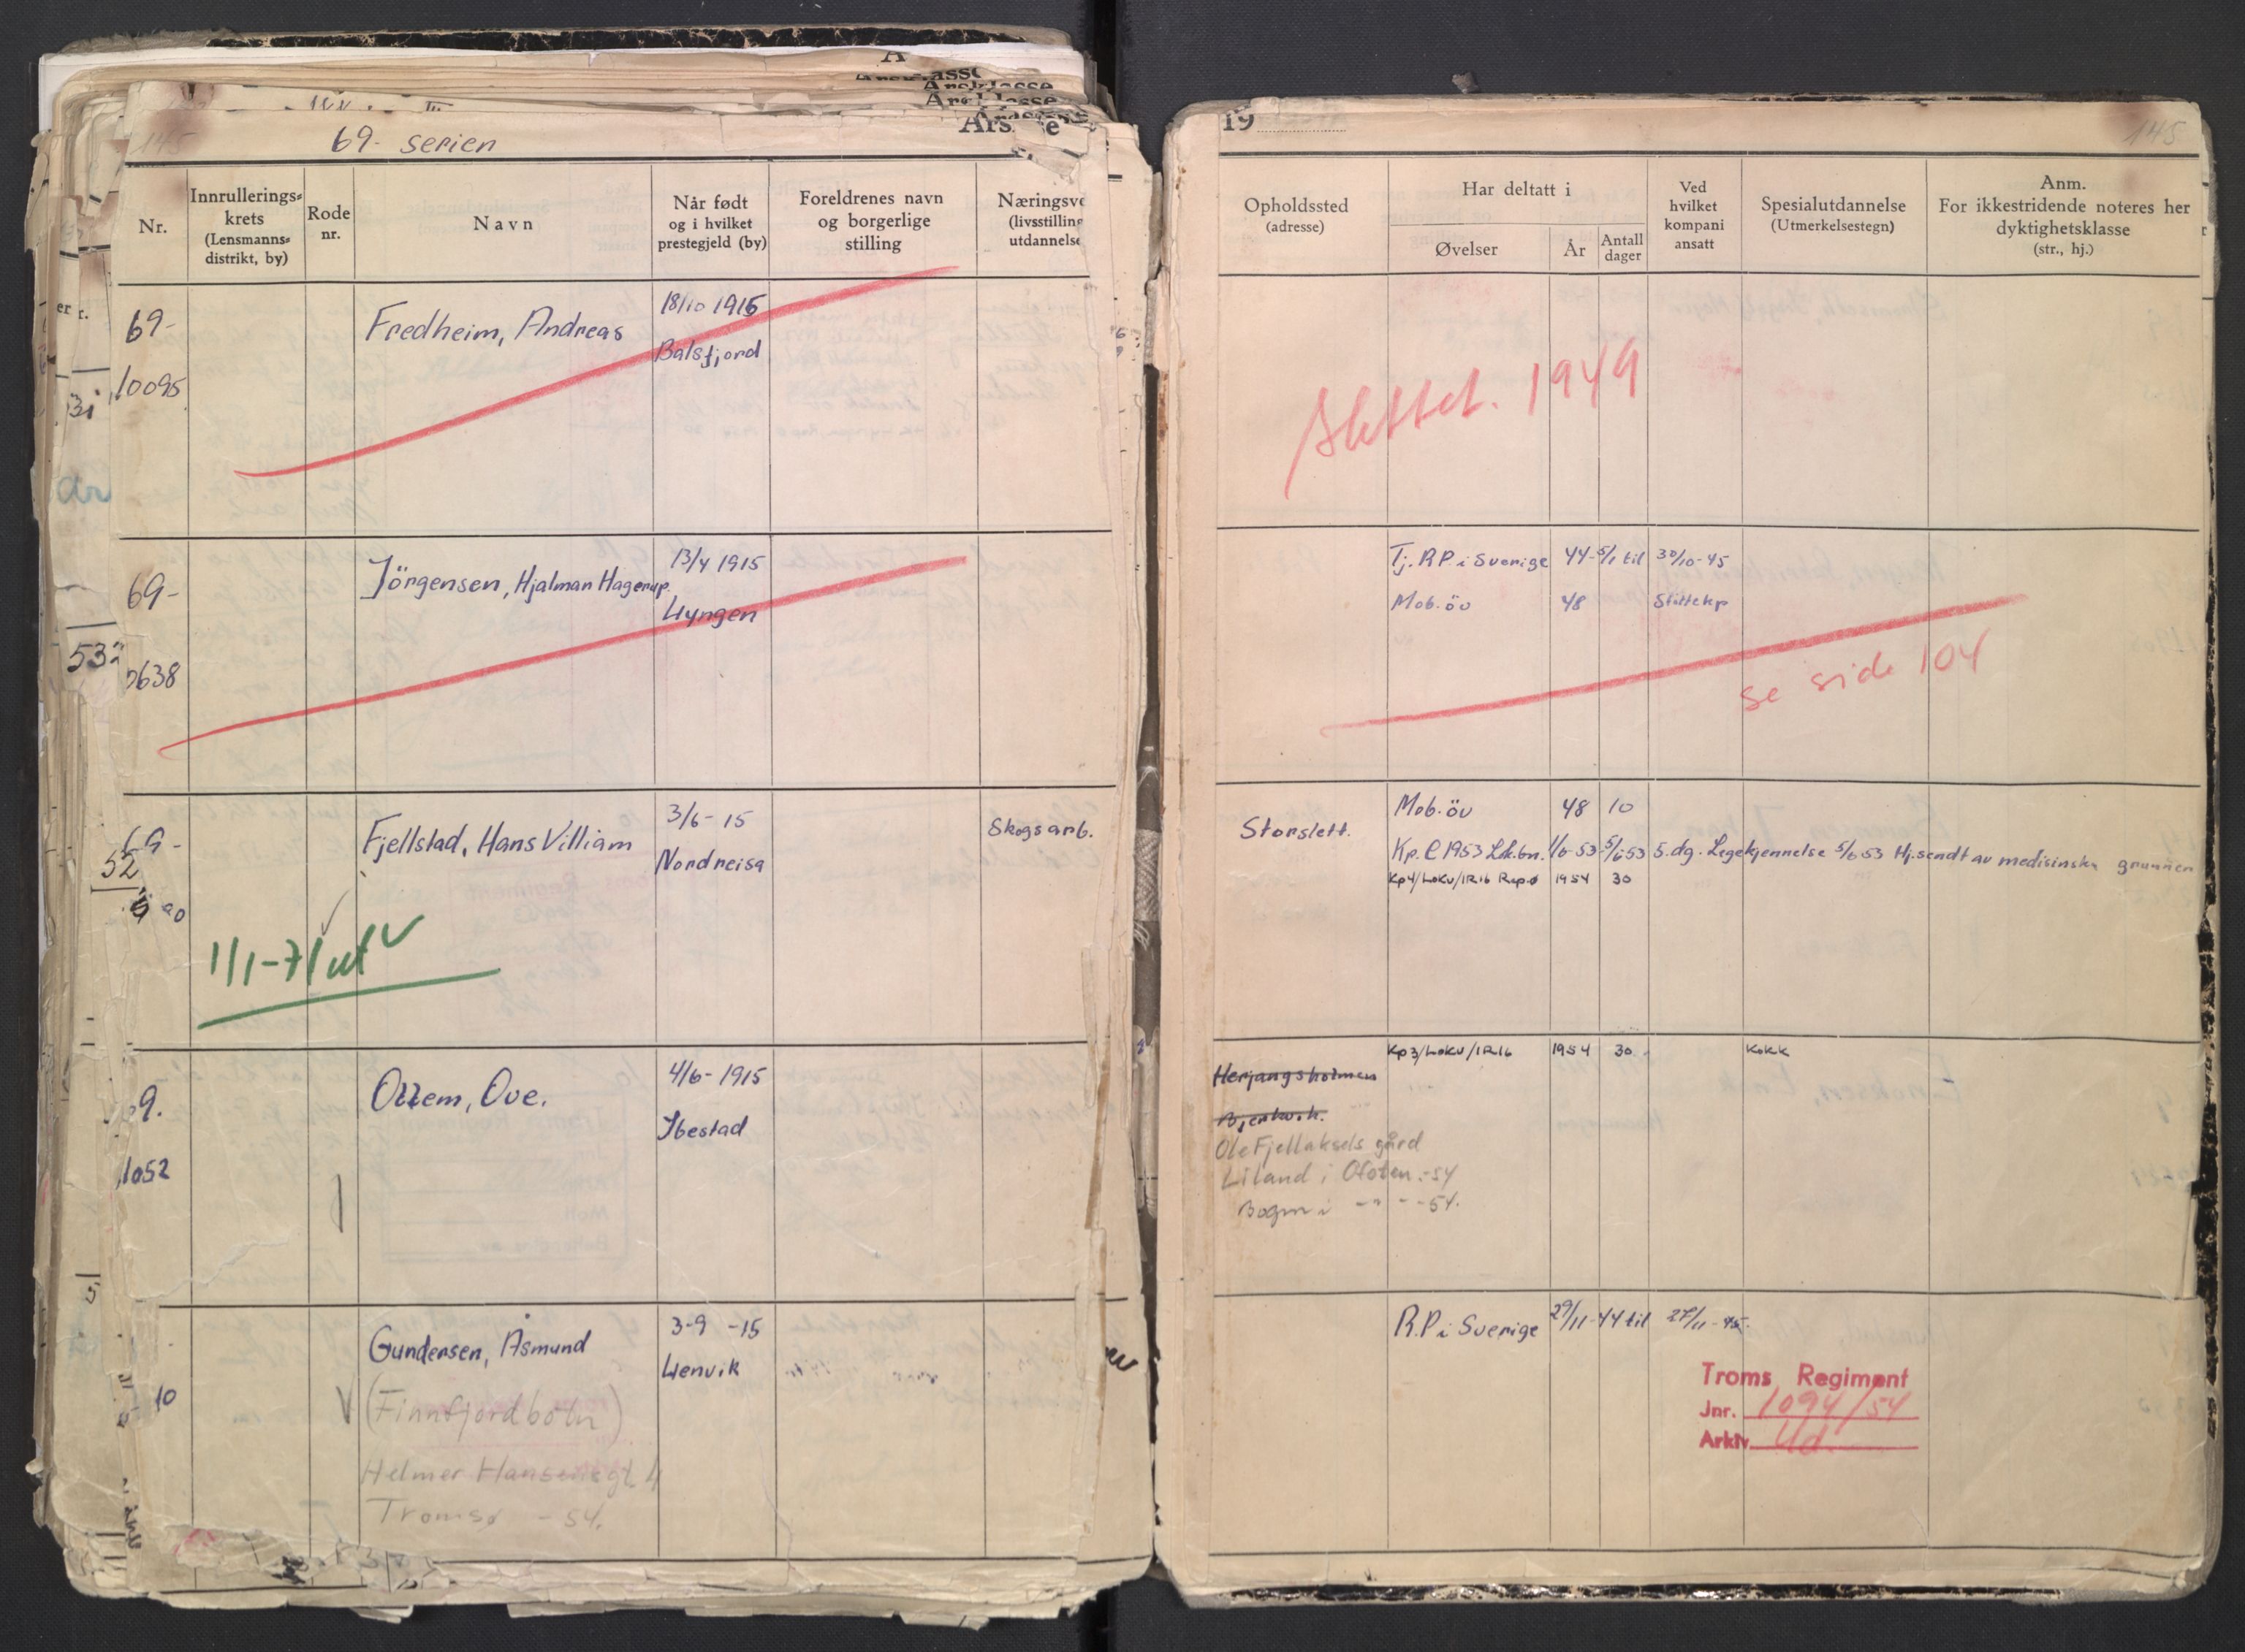 145
69- serien
Årsklasse
19
145
Nr.
Innrullerings-
krets
(Lensmanns-
distrikt, by)
Rode
nr.
Navn
Når født
og i hvilket
prestegjeld (by)
Foreldrenes navn
og borgerlige
stilling
Næringsve
(livsstilling
utdannelse
Opholdssted
(adresse)
Har deltatt i
Øvelser
År
Antall
dager
Ved
hvilket
kompani
ansatt
Spesialutdannelse
(Utmerkelsestegn)
Anm.
For ikkestridende noteres her
dyktighetsklasse
(str., hj.)
69-
10095
Fredheim, Andreas
18/10 1915
Balsfjord
slettet. 1949
69-
0638
Jörgensen, Hjalmar Hagerup.
13/4 1915
Lyngen
Tj. R.P. i Sverige 44-5/1 til 30/10-45
Mob. öv 48 Støttekp
se side 104
69-
Fjellstad, Hans Villiam
3/6- 15
Nordreisa
Skogsarb.
1/1-71 ut
Storslett.
Mob. öv 48 10
Kp. C 1953 Lok.bn. 1/6-53-5/6 53 5. dg. Legekjennelse 5/6 53 Hj.sendt av medisinske grunner
Kp4/LOKV/IR16 Rep.ø 1954 30
69.
1052
Ottem, Ove.
4/6- 1915
Ibestad
Herjangsholmen
Bjerkvik.
Ole Fjellaksels gård
Liland i Ofoten.-54
Bogen i -"- -54.
Kp3/LOKV/IR16 1954 30
Kokk
10
Gundersen, Åsmund
(Finnfjordbotn)
Helmer Hansensgt. 4
Tromsø - 54.
3-9 -15
Lenvik
R.P i Sverige 29/11-44 til 27/11-45.
Troms Regiment
Jnr. 1094/54
Arkiv Ud.